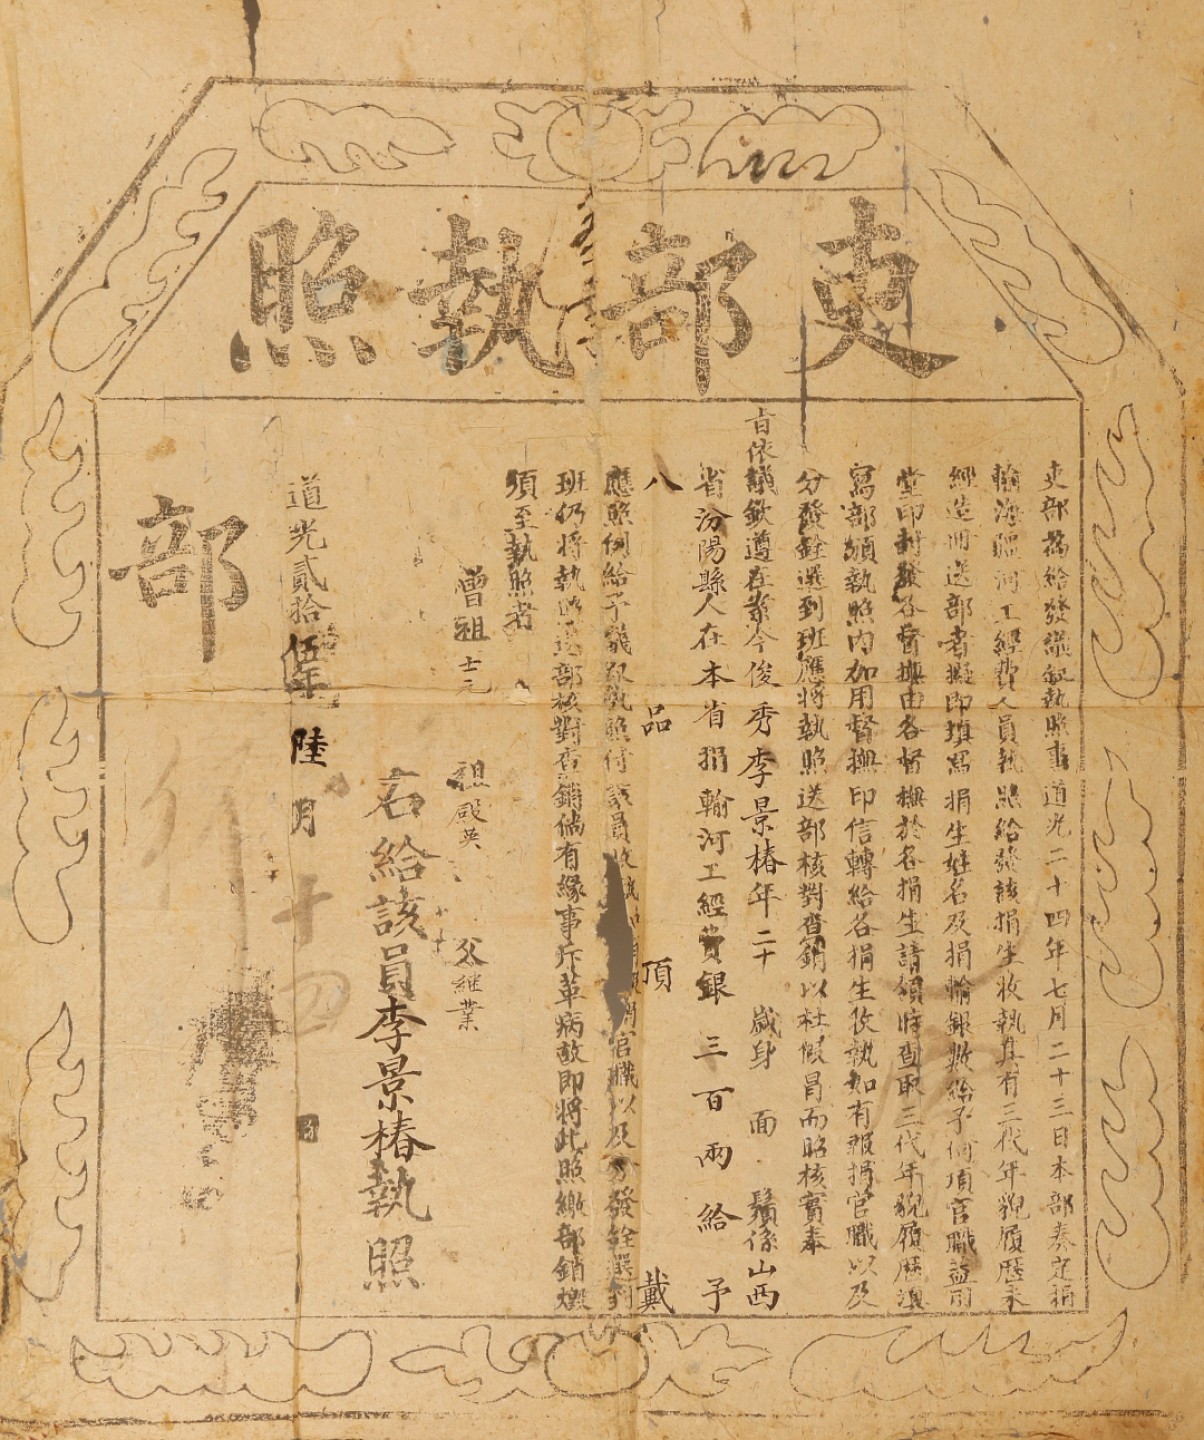 吏部執照
吏部為給發議敘執照事道光二十四年七月二十三日本部奏定捐
輸海疆河工經費人員執照給發該捐生收執其有三代年貌履歷未
經造冊送部者擬即填寫捐生姓名及捐輸銀數給予何項官職並用
堂印封發各督撫由各督撫於各捐生請領時查取三代年貌履歷填
寫部頒執照內加用督撫印信轉給各捐生收執如有報捐官職以及
分發銓選到班應將執照送部核對查銷以杜假冒而昭核實奉
旨依議欽遵在案今俊秀李景椿年二十 歲身 面 鬚係山西
省汾陽縣人在本省捐輸河工經費銀三百兩給予
八品頂戴
應照例給予議敘執照付該員收執 官職以及分發銓選到
班仍將執照送部核對查銷倘有緣事斥革病故即將此照繳部銷燬
須至執照者
曾祖士元 祖殿英 父繼業
右給該員李景椿執照
道光貳拾伍年陸月十四日
部